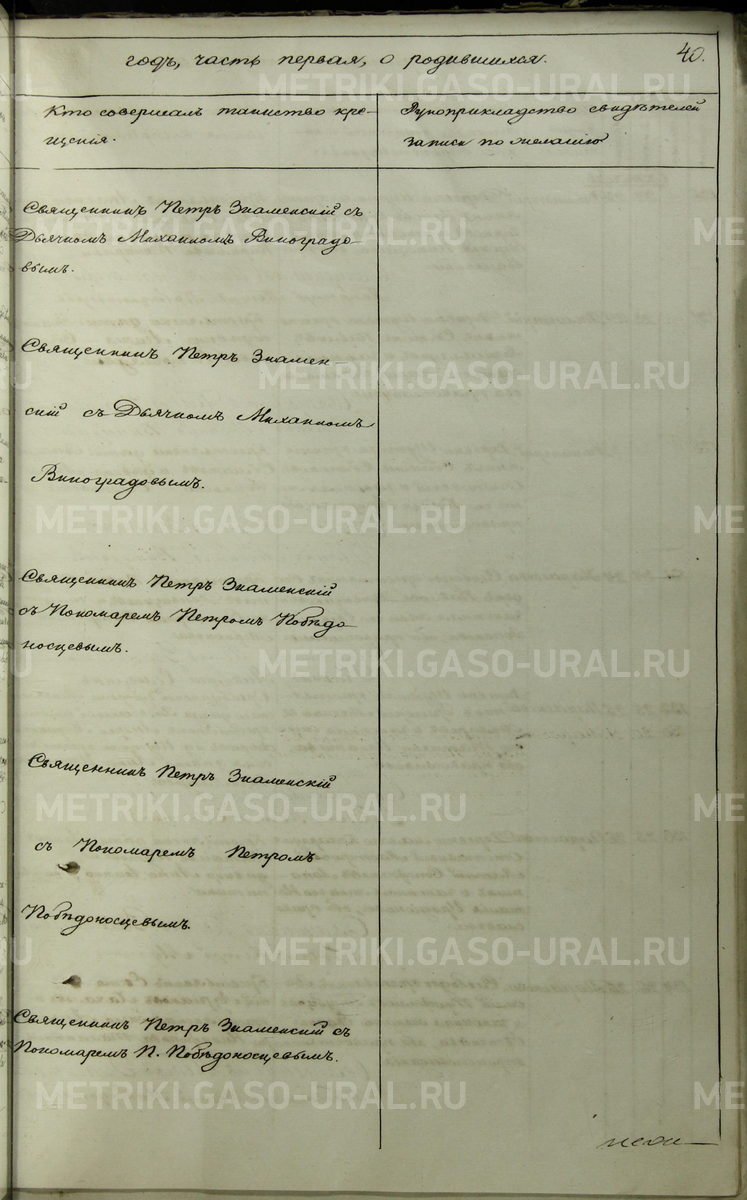 годъ, часть первая, о родившихся.
40.
Кто совершалъ таинство кре-
щенія.
Рукоприкладство свидѣтелей
записи по желанію
Священникъ Петръ Знаменскій съ
Дьячкомъ Михаиломъ Виноградо-
вымъ.
Священникъ Петръ Знамен-
скій съ Дьячкомъ Михаиломъ
Виноградовымъ.
Священникъ Петръ Знаменскій
съ Пономаремъ Петромъ Побѣдо
носцевымъ.
Священникъ Петръ Знаменскій
съ Пономаремъ Петромъ
Побѣдоносцевымъ.
Священникъ Петръ Знаменскій съ
Пономаремъ П. Побѣдоносцевымъ.
METRIKI.GASO-URAL.RU